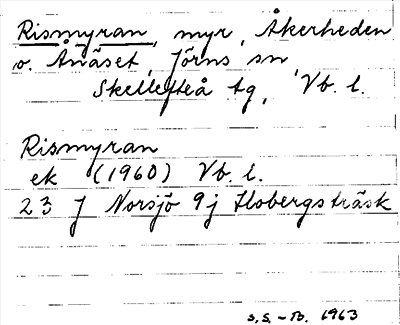 Rismyran, myr, Åkerheden
o. Ånäset, Jörns sn,
Skellefteå tg, Vb. l.
Rismyran
ek (1960) Vb. l.
23 J Norsjö 9j Storbergsträsk
S.S.-B. 1963